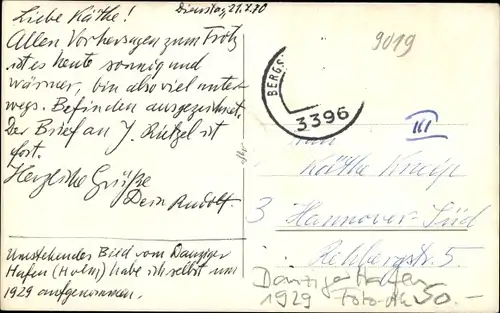 Dienstag, 21.4.70
Liebe Käthe!
Allen Vorhersagen zum Trotz
ist es heute sonnig und
wärmer, bin also viel unter-
wegs. Befinden ausgezeichnet.
Der Brief an J. Rützel ist
fort.
Herzliche Grüße
Dein Rudolf.
Umstehendes Bild vom Danziger
Hafen (Holm) habe ich selbst um
1929 aufgenommen.
9019
BERGS
3396
III
Käthe Kneip
3 Hannover-Süd
Rehbergstr. 5
Danziger Hafen
1929 Foto-Ak 50.-